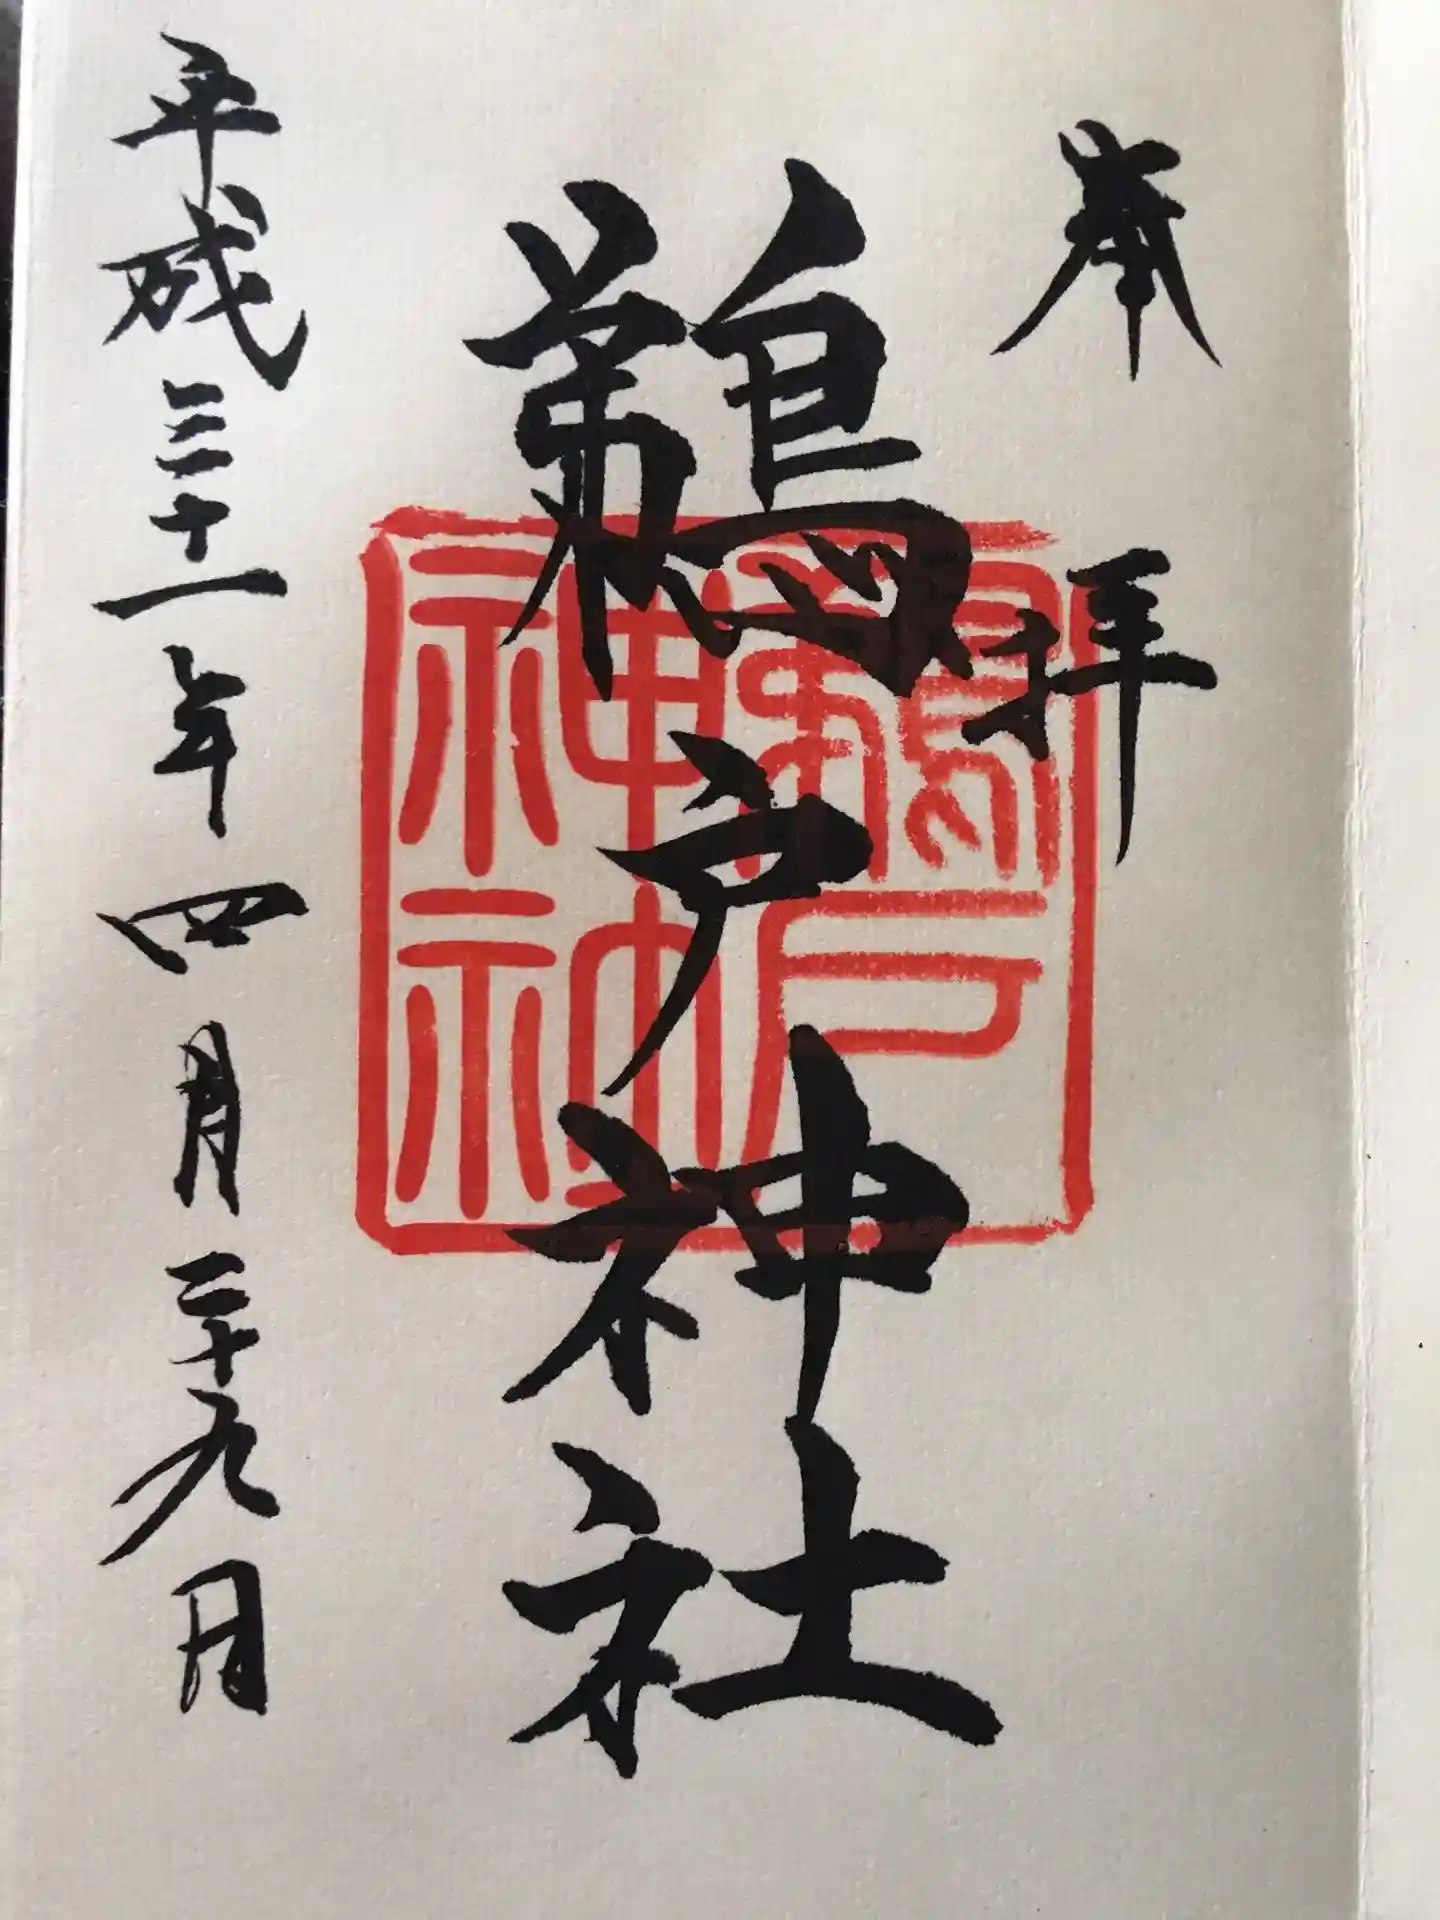 奉拝
鵜戸神社
平成三十一年四月二十九日
鵜戸
神社